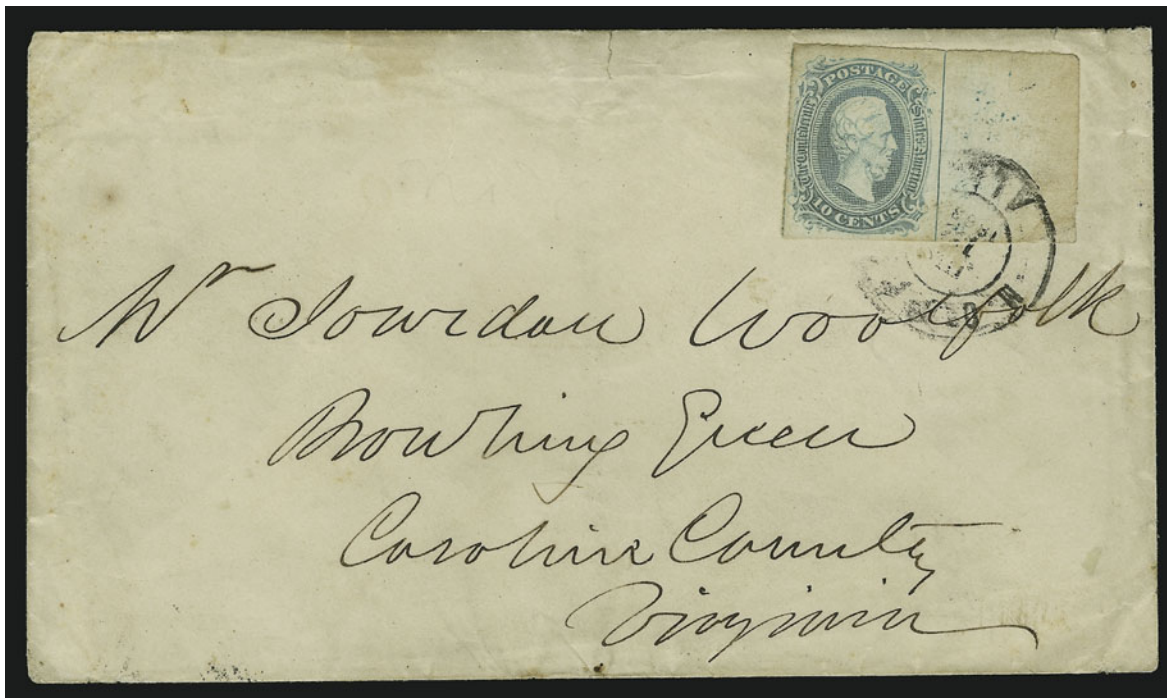 POSTAGE
The Confederate States of America
10 CENTS
Mr Jourdan Woolfolk
Bowling Green
Caroline County
Virginia